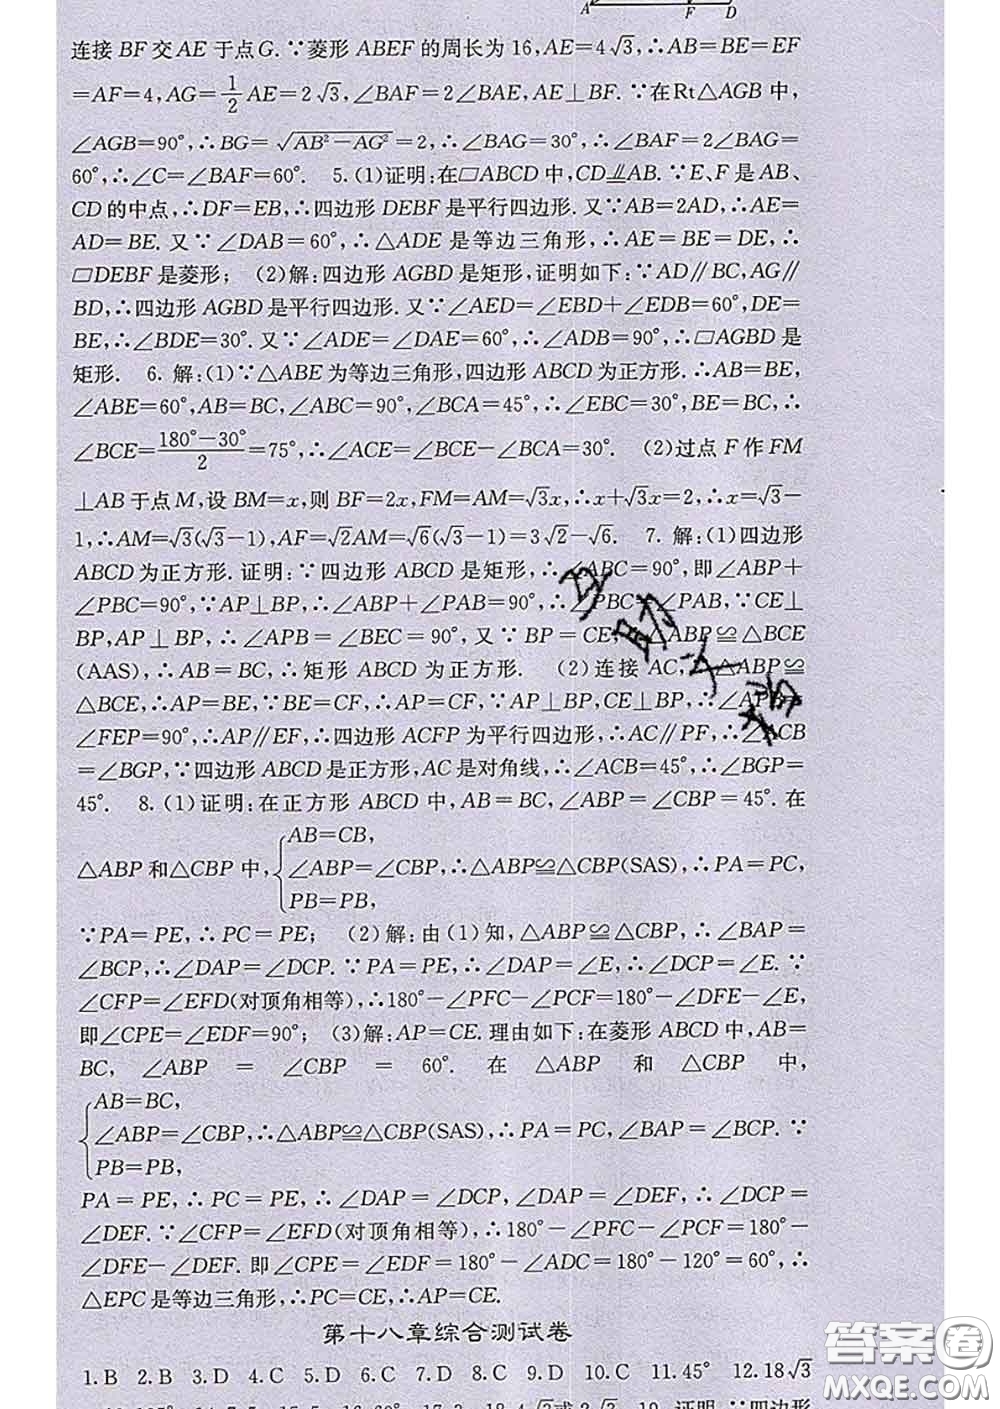 A F D
连接 BF 交 AE 于点 G. ∵菱形 ABEF 的周长为 16,AE=4√3,∴AB=BE=EF
=AF=4,AG=1/2 AE=2√3,∠BAF=2∠BAE,AE⊥BF. ∵在Rt△AGB 中,
∠AGB=90°,∴BG=√(AB²-AG²)=2,∴∠BAG=30°,∴∠BAF=2∠BAG=
60°,∴∠C=∠BAF=60°. 5.(1)证明:在▱ABCD 中,CD∥=AB. ∵E、F 是 AB、
CD 的中点,∴DF=EB,∴四边形 DEBF 是平行四边形. 又∵AB=2AD,∴AE=
AD=BE. 又∵∠DAB=60°,∴△ADE 是等边三角形,∴AE=BE=DE,∴
▱DEBF 是菱形; (2)解:四边形 AGBD 是矩形,证明如下:∵AD∥BC,AG∥
BD,∴四边形 AGBD 是平行四边形. 又∵∠AED=∠EBD+∠EDB=60°,DE=
BE,∴∠BDE=30°. 又∵∠ADE=∠DAE=60°,∴∠ADB=90°,∴▱AGBD 是
矩形. 6. 解:(1)∵△ABE 为等边三角形,四边形 ABCD 为正方形. ∴AB=BE,
∠ABE=60°,AB=BC,∠ABC=90°,∠BCA=45°,∴∠EBC=30°,BE=BC,∴
∠BCE=(180°-30°)/2=75°,∴∠ACE=∠BCE-∠BCA=30°. (2)过点 F 作 FM
⊥AB 于点 M,设 BM=x,则 BF=2x,FM=AM=√3x,∴x+√3x=2,∴x=√3-
1,∴AM=√3(√3-1),AF=√2AM=√6(√3-1)=3√2-√6. 7. 解:(1)四边形
ABCD 为正方形. 证明:∵四边形 ABCD 是矩形,∴∠ABC=90°,即∠ABP+
∠PBC=90°,∵AP⊥BP,∴∠ABP+∠PAB=90°,∴∠PBC=∠PAB,∵CE⊥
BP,AP⊥BP,∴∠APB=∠BEC=90°,又∵BP=CE,∴△ABP≌△BCE
(AAS),∴AB=BC,∴矩形 ABCD 为正方形. (2)连接 AC,∵△ABP≌
△BCE,∴AP=BE,∵BE=CF,∴AP=CF,∵AP⊥BP,CE⊥BP,∴∠APB=
∠FEP=90°,∴AP∥EF,∴四边形 ACFP 为平行四边形,∴AC∥PF,∴∠ACB
=∠BGP,∵四边形 ABCD 是正方形,AC 是对角线,∴∠ACB=45°,∴∠BGP=
45°. 8.(1)证明:在正方形 ABCD 中,AB=BC,∠ABP=∠CBP=45°. 在
AB=CB,
△ABP 和△CBP 中,{∠ABP=∠CBP,∴△ABP≌△CBP(SAS),∴PA=PC,
PB=PB,
∵PA=PE,∴PC=PE; (2)解:由(1)知,△ABP≌△CBP,∴∠BAP=
∠BCP,∴∠DAP=∠DCP. ∵PA=PE,∴∠DAP=∠E,∴∠DCP=∠E. ∵
∠CFP=∠EFD(对顶角相等),∴180°-∠PFC-∠PCF=180°-∠DFE-∠E,
即∠CPE=∠EDF=90°; (3)解:AP=CE. 理由如下:在菱形 ABCD 中,AB=
BC, ∠ABP = ∠CBP = 60°. 在 △ABP 和 △CBP 中,
AB=BC,
{∠ABP=∠CBP,∴△ABP≌△CBP(SAS),∴PA=PC,∠BAP=∠BCP. ∵
PB=PB,
PA=PE,∴PC=PE,∴∠DAP=∠DCP,∠DAP=∠DEF,∴∠DCP=
∠DEF. ∵∠CFP=∠EFD(对顶角相等),∴180°-∠PFC-∠PCF=180°-
∠DFE-∠DEF. 即∠CPE=∠EDF=180°-∠ADC=180°-120°=60°,∴
△EPC 是等边三角形,∴PC=CE,∴AP=CE.
第十八章综合测试卷
1. B 2. B 3. D 4. D 5. C 6. C 7. D 8. C 9. D 10. C 11. 45° 12. 18√3
答案圈
MXQE.COM